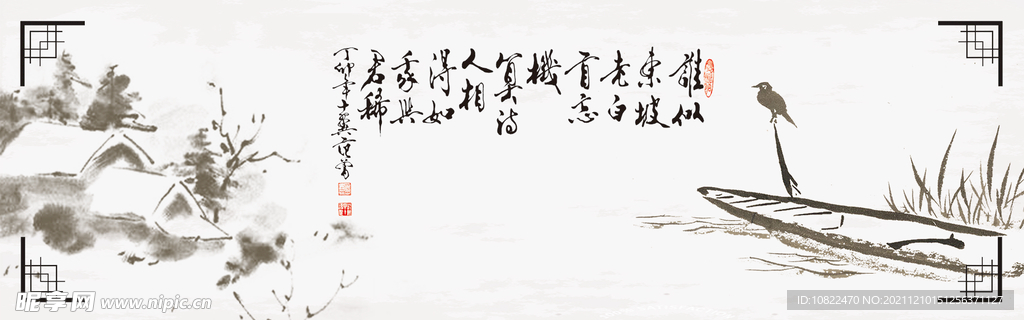 誰似
東坡
老白
首忘
機
算詩
人相
得如
我與
君稀
丁卯年十
昵享网 www.nipic.cn
ID:10822470 NO:20211210151256371127